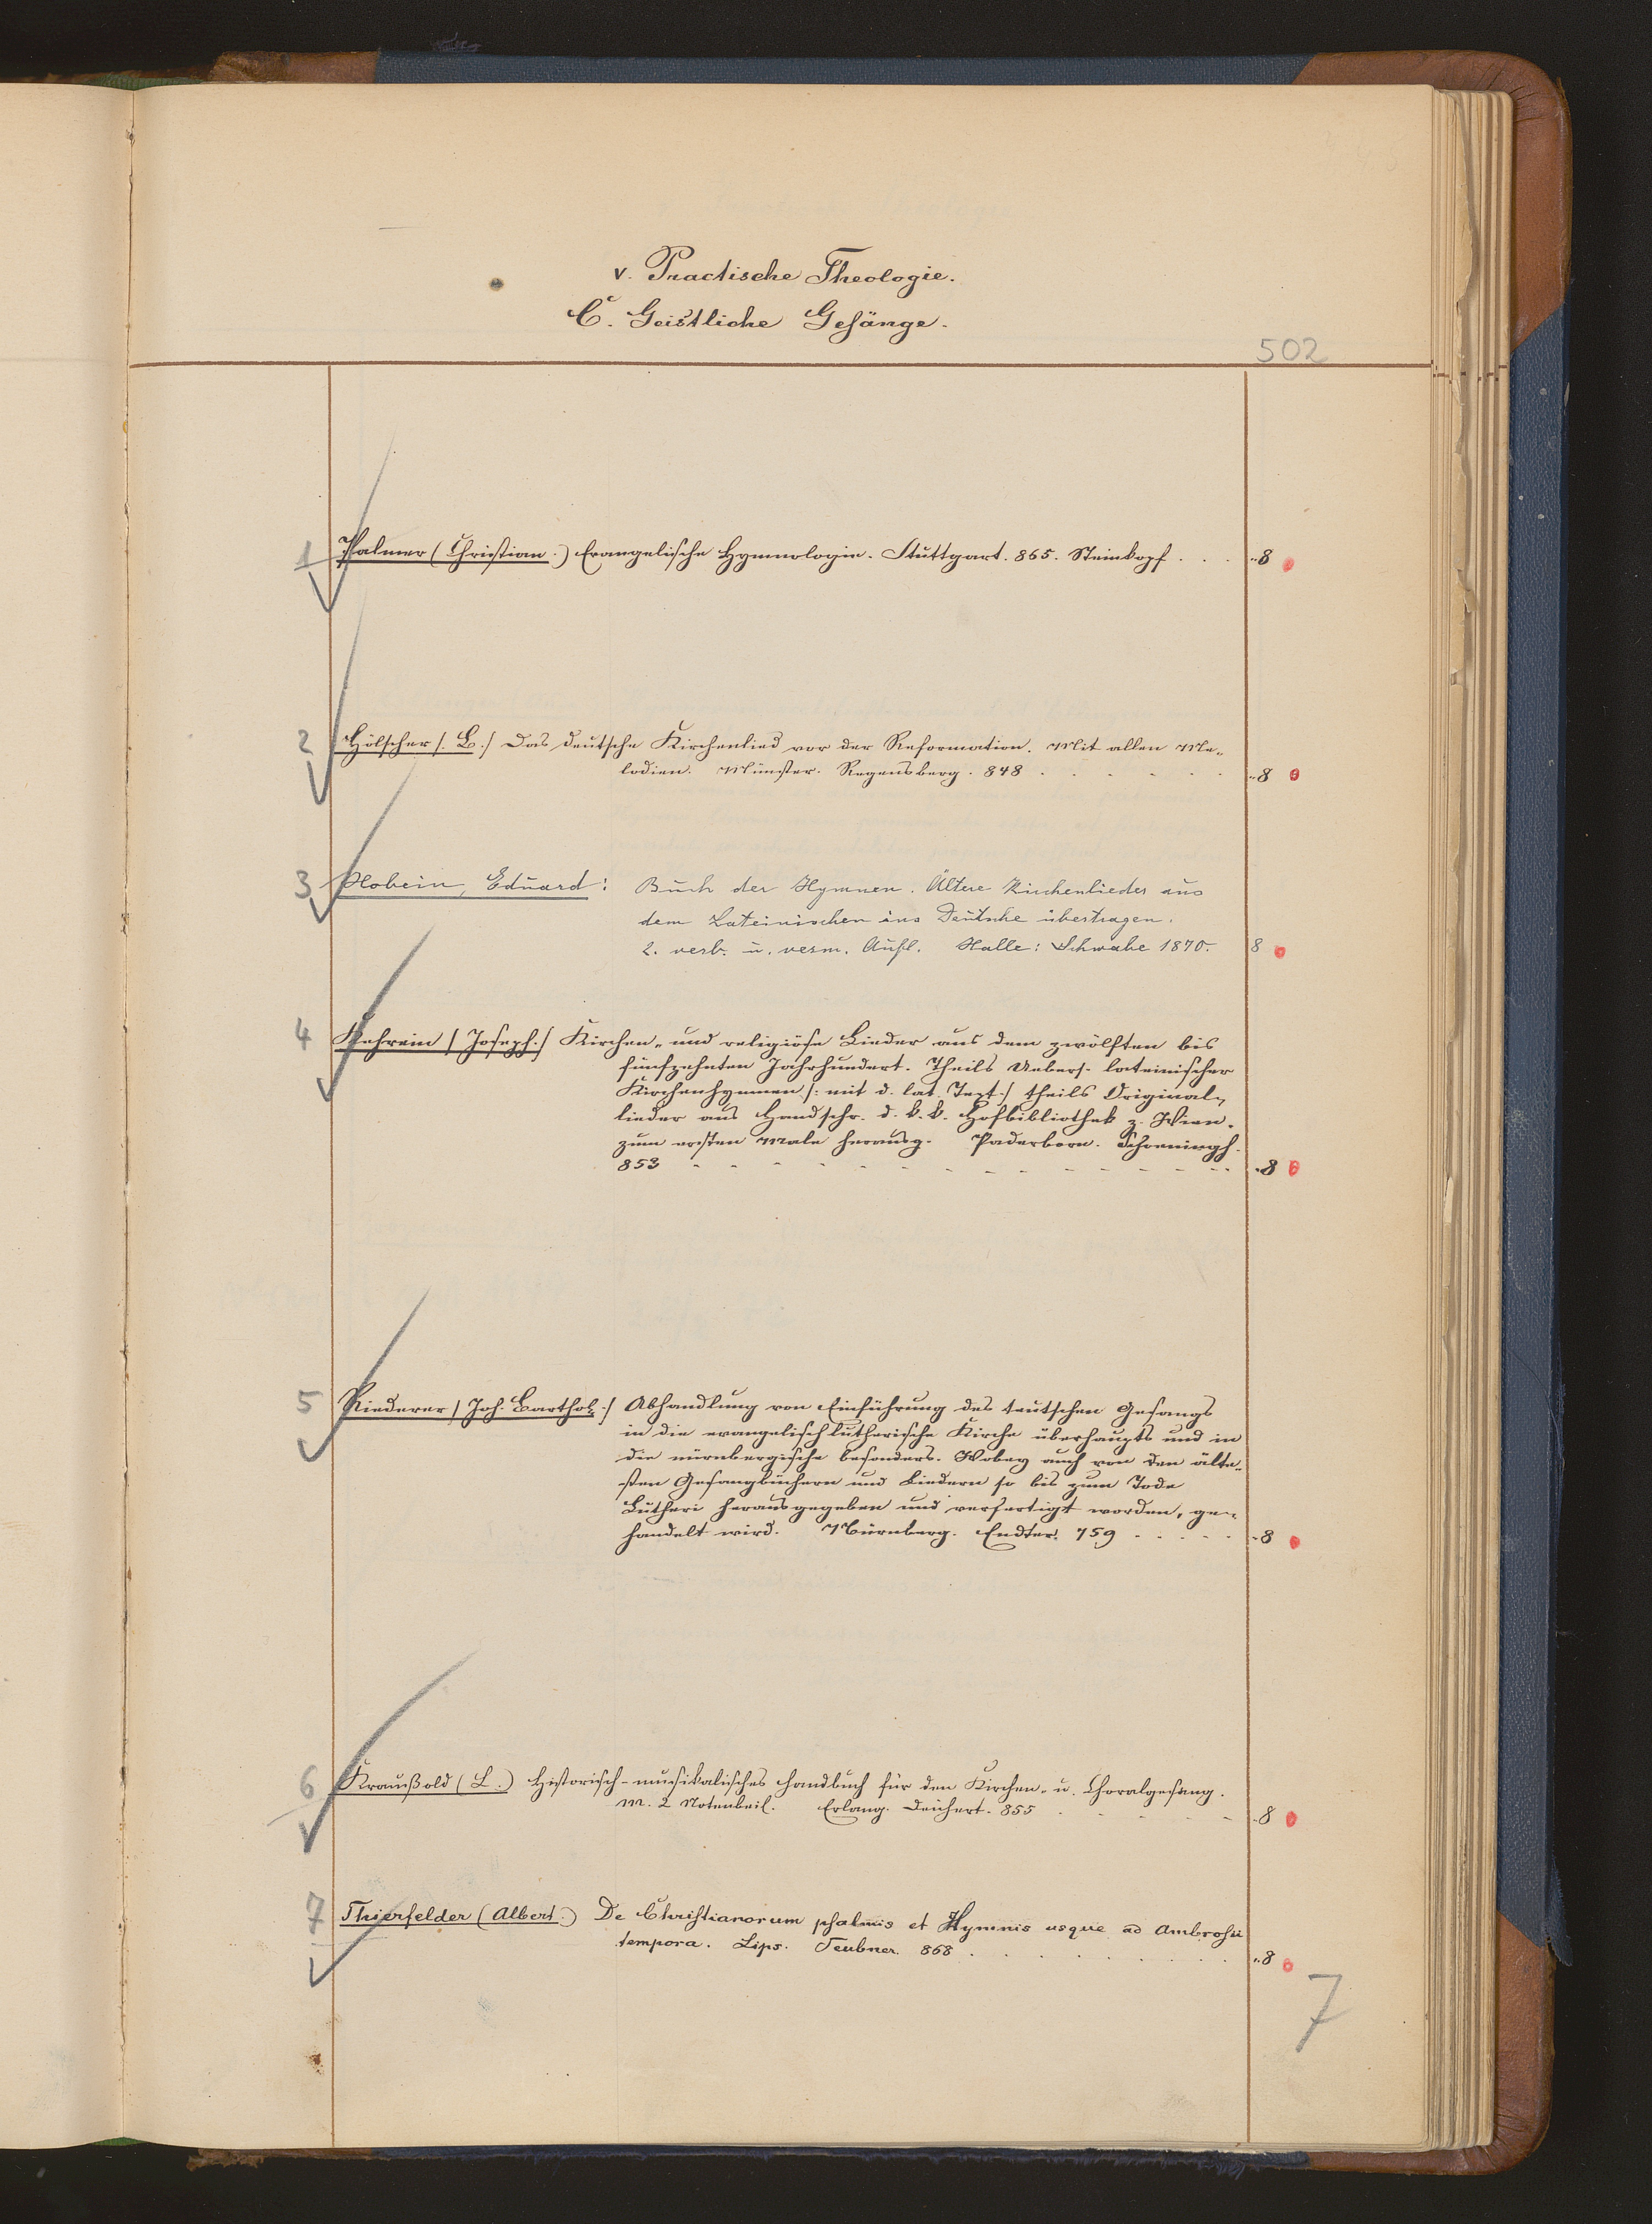 v. Practische Theologie.
C. Geistliche Gesänge.
502
1 Palmer (Christian.) Evangelische Hymnologie. Stuttgart. 865. Steinkopf . . . "8
2 Hölscher /. B./ Das deutsche Kirchenlied vor der Reformation. Mit allen Me-
lodien. Münster. Regensberg. 848 . . . . . . "8
3 Hobein, Eduard: Buch der Hymnen. Ältere Kirchenlieder aus
dem Lateinischen ins Deutsche übertragen.
2. verb. u. verm. Aufl. Halle: Schwabe 1870. 8
4 Kehrein / Joseph./ Kirchen- und religiöse Lieder aus dem zwölften bis
fünfzehnten Jahrhundert. Theils Uebers. lateinischer
Kirchenhymnen /: mit d. lat. Text :/ theils Original-
lieder aus Handschr. d. k. k. Hofbibliothek z. Wien.
zum ersten Male herausg. Paderborn. Schoeningh.
853 - - - - - - - - - - - - - "8
5 Riederer / Joh. Barthol./ Abhandlung von Einführung des teutschen Gesangs
in die evangelisch lutherische Kirche überhaupts und in
die nürnbergische besonders. Wobey auch von den älte-
sten Gesangbüchern und Liedern so bis zum Tode
Lutheri herausgegeben und verfertigt worden, ge-
handelt wird. Nürnberg. Endter. 759 - - - - - "8
6 Kraußold (L.) Historisch-musikalisches Handbuch für den Kirchen- u. Choralgesang.
M. 2 Notenbeil. Erlang. Deichert. 855 - - - - - "8
7 Thierfelder (Albert.) De Christianorum psalmis et Hymnis usque ad Ambrosii
tempora. Lips. Teubner. 868 . . . . . . . "8
7